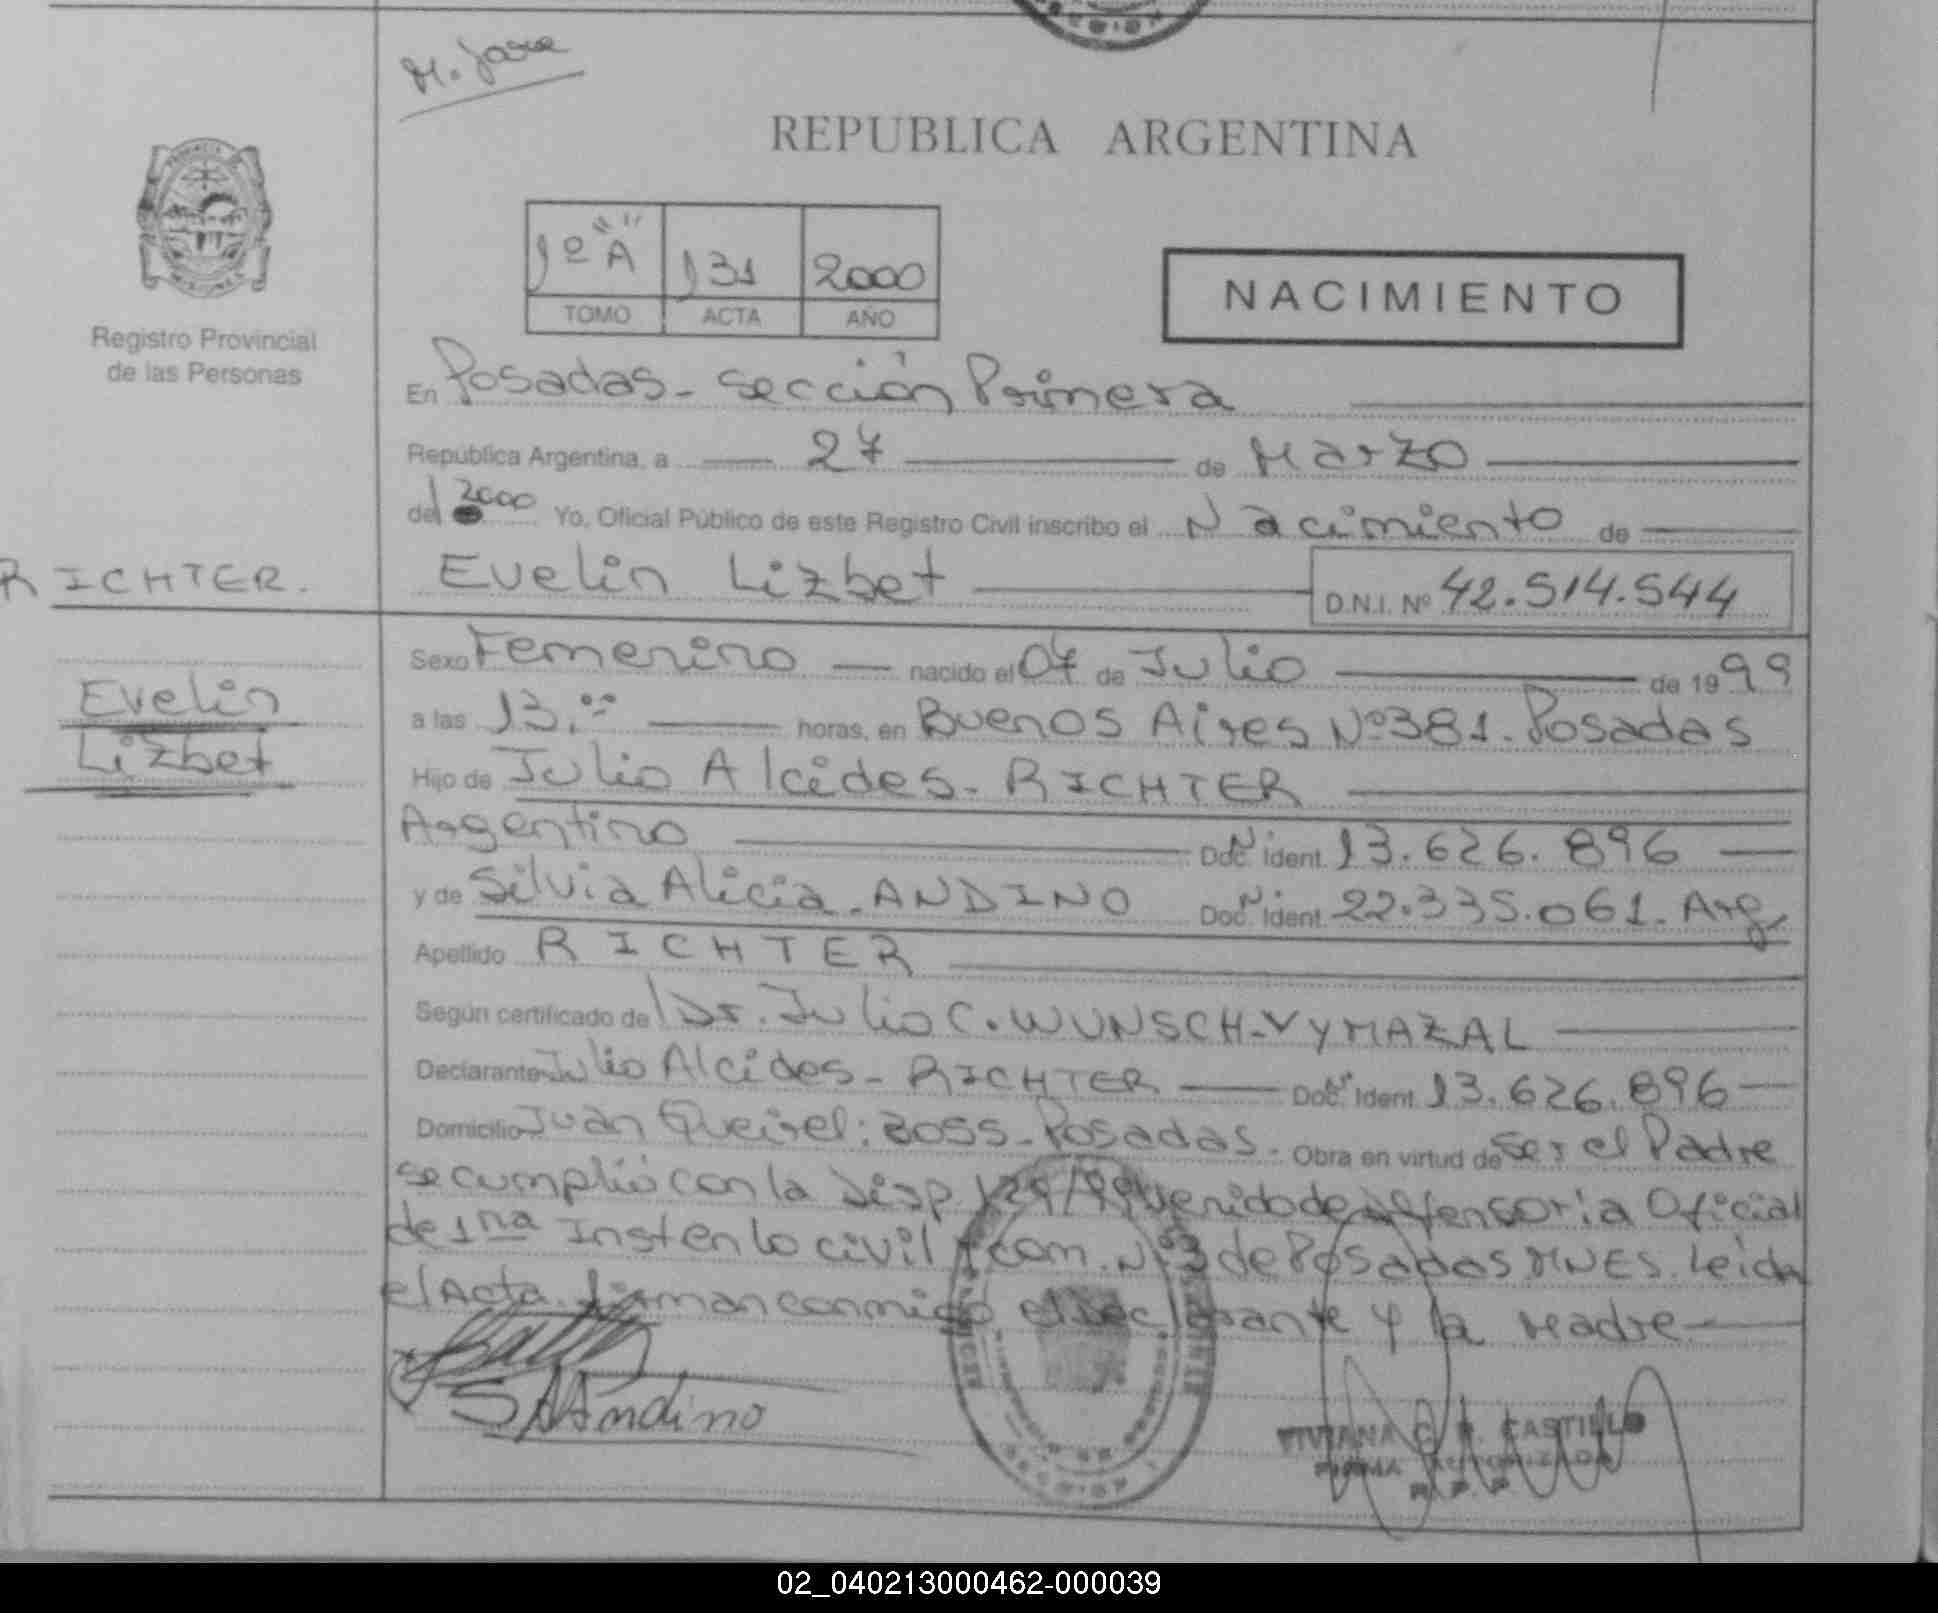 M. Jose
REPUBLICA ARGENTINA
1º "A" 131 2000
TOMO ACTA AÑO
NACIMIENTO
Registro Provincial
de las Personas
En Posadas - sección Primera
República Argentina, a 27 de Marzo
del 2000 Yo, Oficial Público de este Registro Civil inscribo el Nacimiento de
RICHTER. Evelin Lizbet D.N.I. Nº 42.514.544
Evelin
Lizbet
Sexo Femenino nacido el 07 de Julio de 1999
a las 13.00 horas, en Buenos Aires Nº 381. Posadas
Hijo de Julio Alcides - RICHTER
Argentino Doc. Ident. 13.626.896
y de Silvia Alicia - ANDINO Doc. Ident. 22.335.061. Arg.
Apellido RICHTER
Según certificado del Dr. Julio C. WUNSCH-VYMAZAL
Declarante Julio Alcides - RICHTER Doc. Ident. 13.626.896
Domicilio Juan Queirel: 3055 - Posadas. Obra en virtud de Ser el Padre
se cumplió con la Disp. 129/99 venido de defensoria Oficial
de 1na Inst en lo civil y com. Nº 3 de Posadas MNES. Leida
el Acta firman conmigo el declarante y la Madre
S A Andino
VIVIANA CASTILLO
FIRMA AUTORIZADA
R. P. P.
02_040213000462-000039